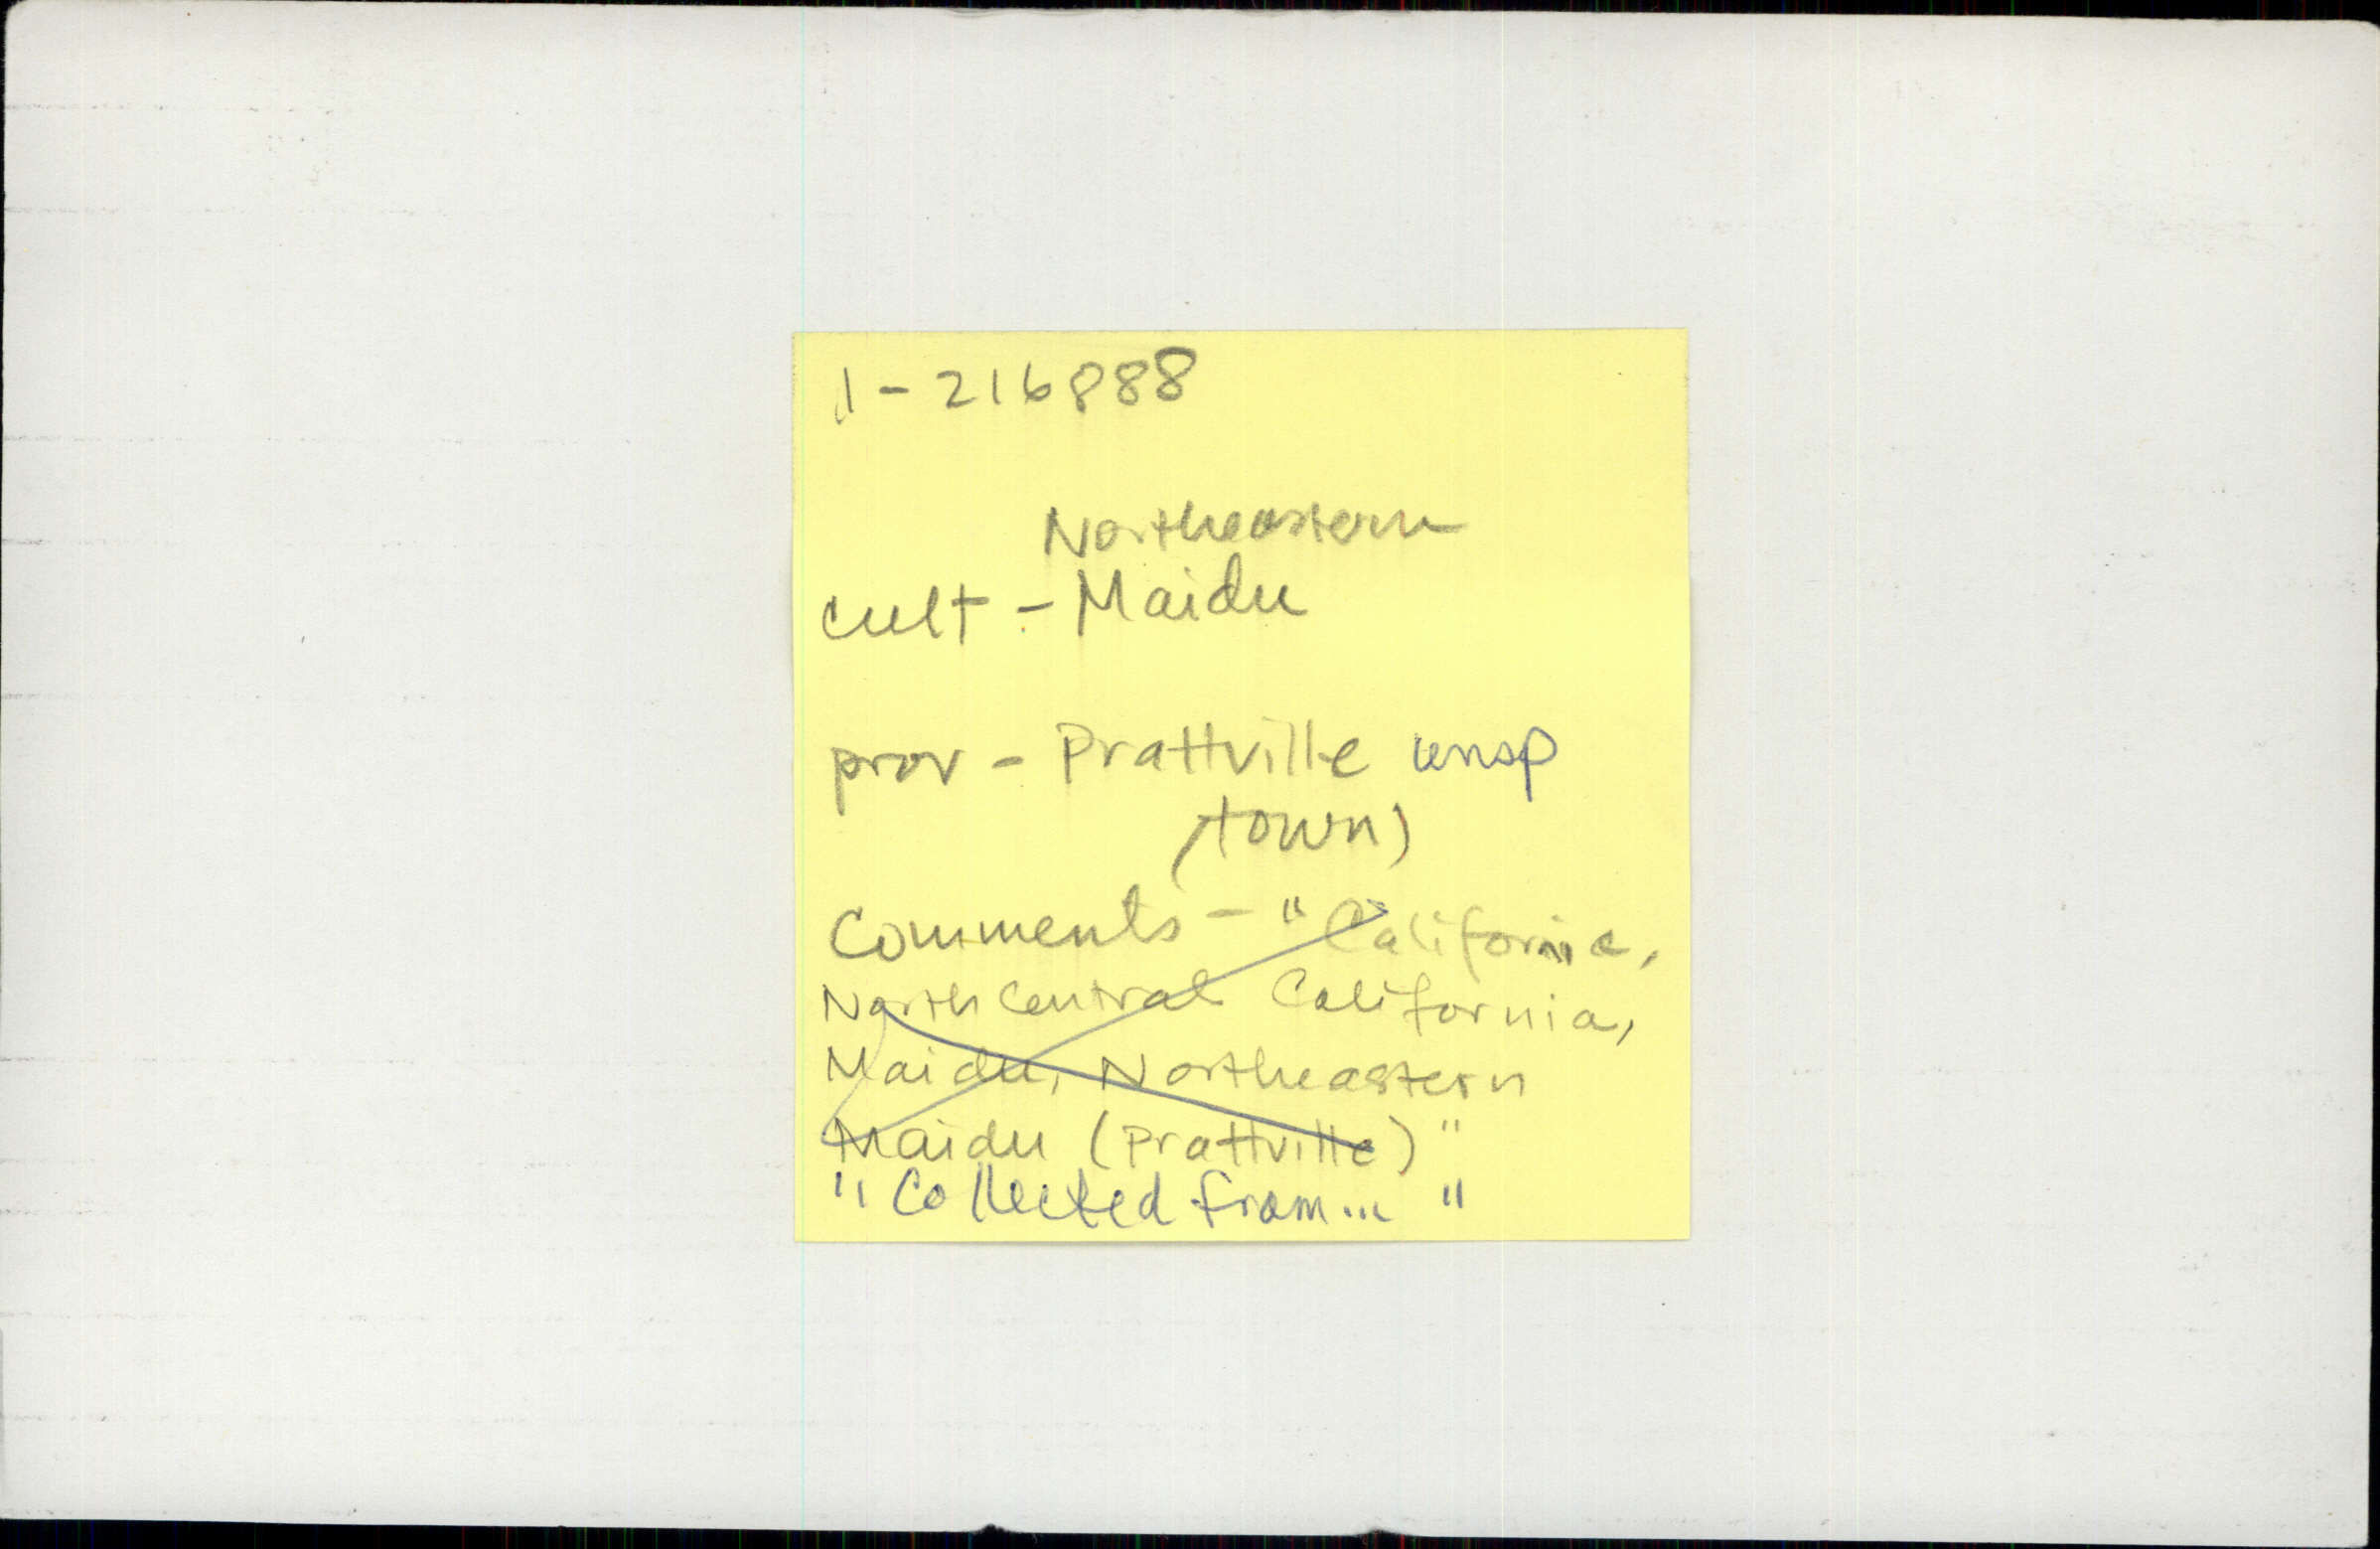 1-216888
Northeastern
cult - Maidu
prov - Prattville unsp
(town)
Comments - "California,
North Central California,
Maidu, Northeastern
Maidu (Prattville)"
"Collected from... "